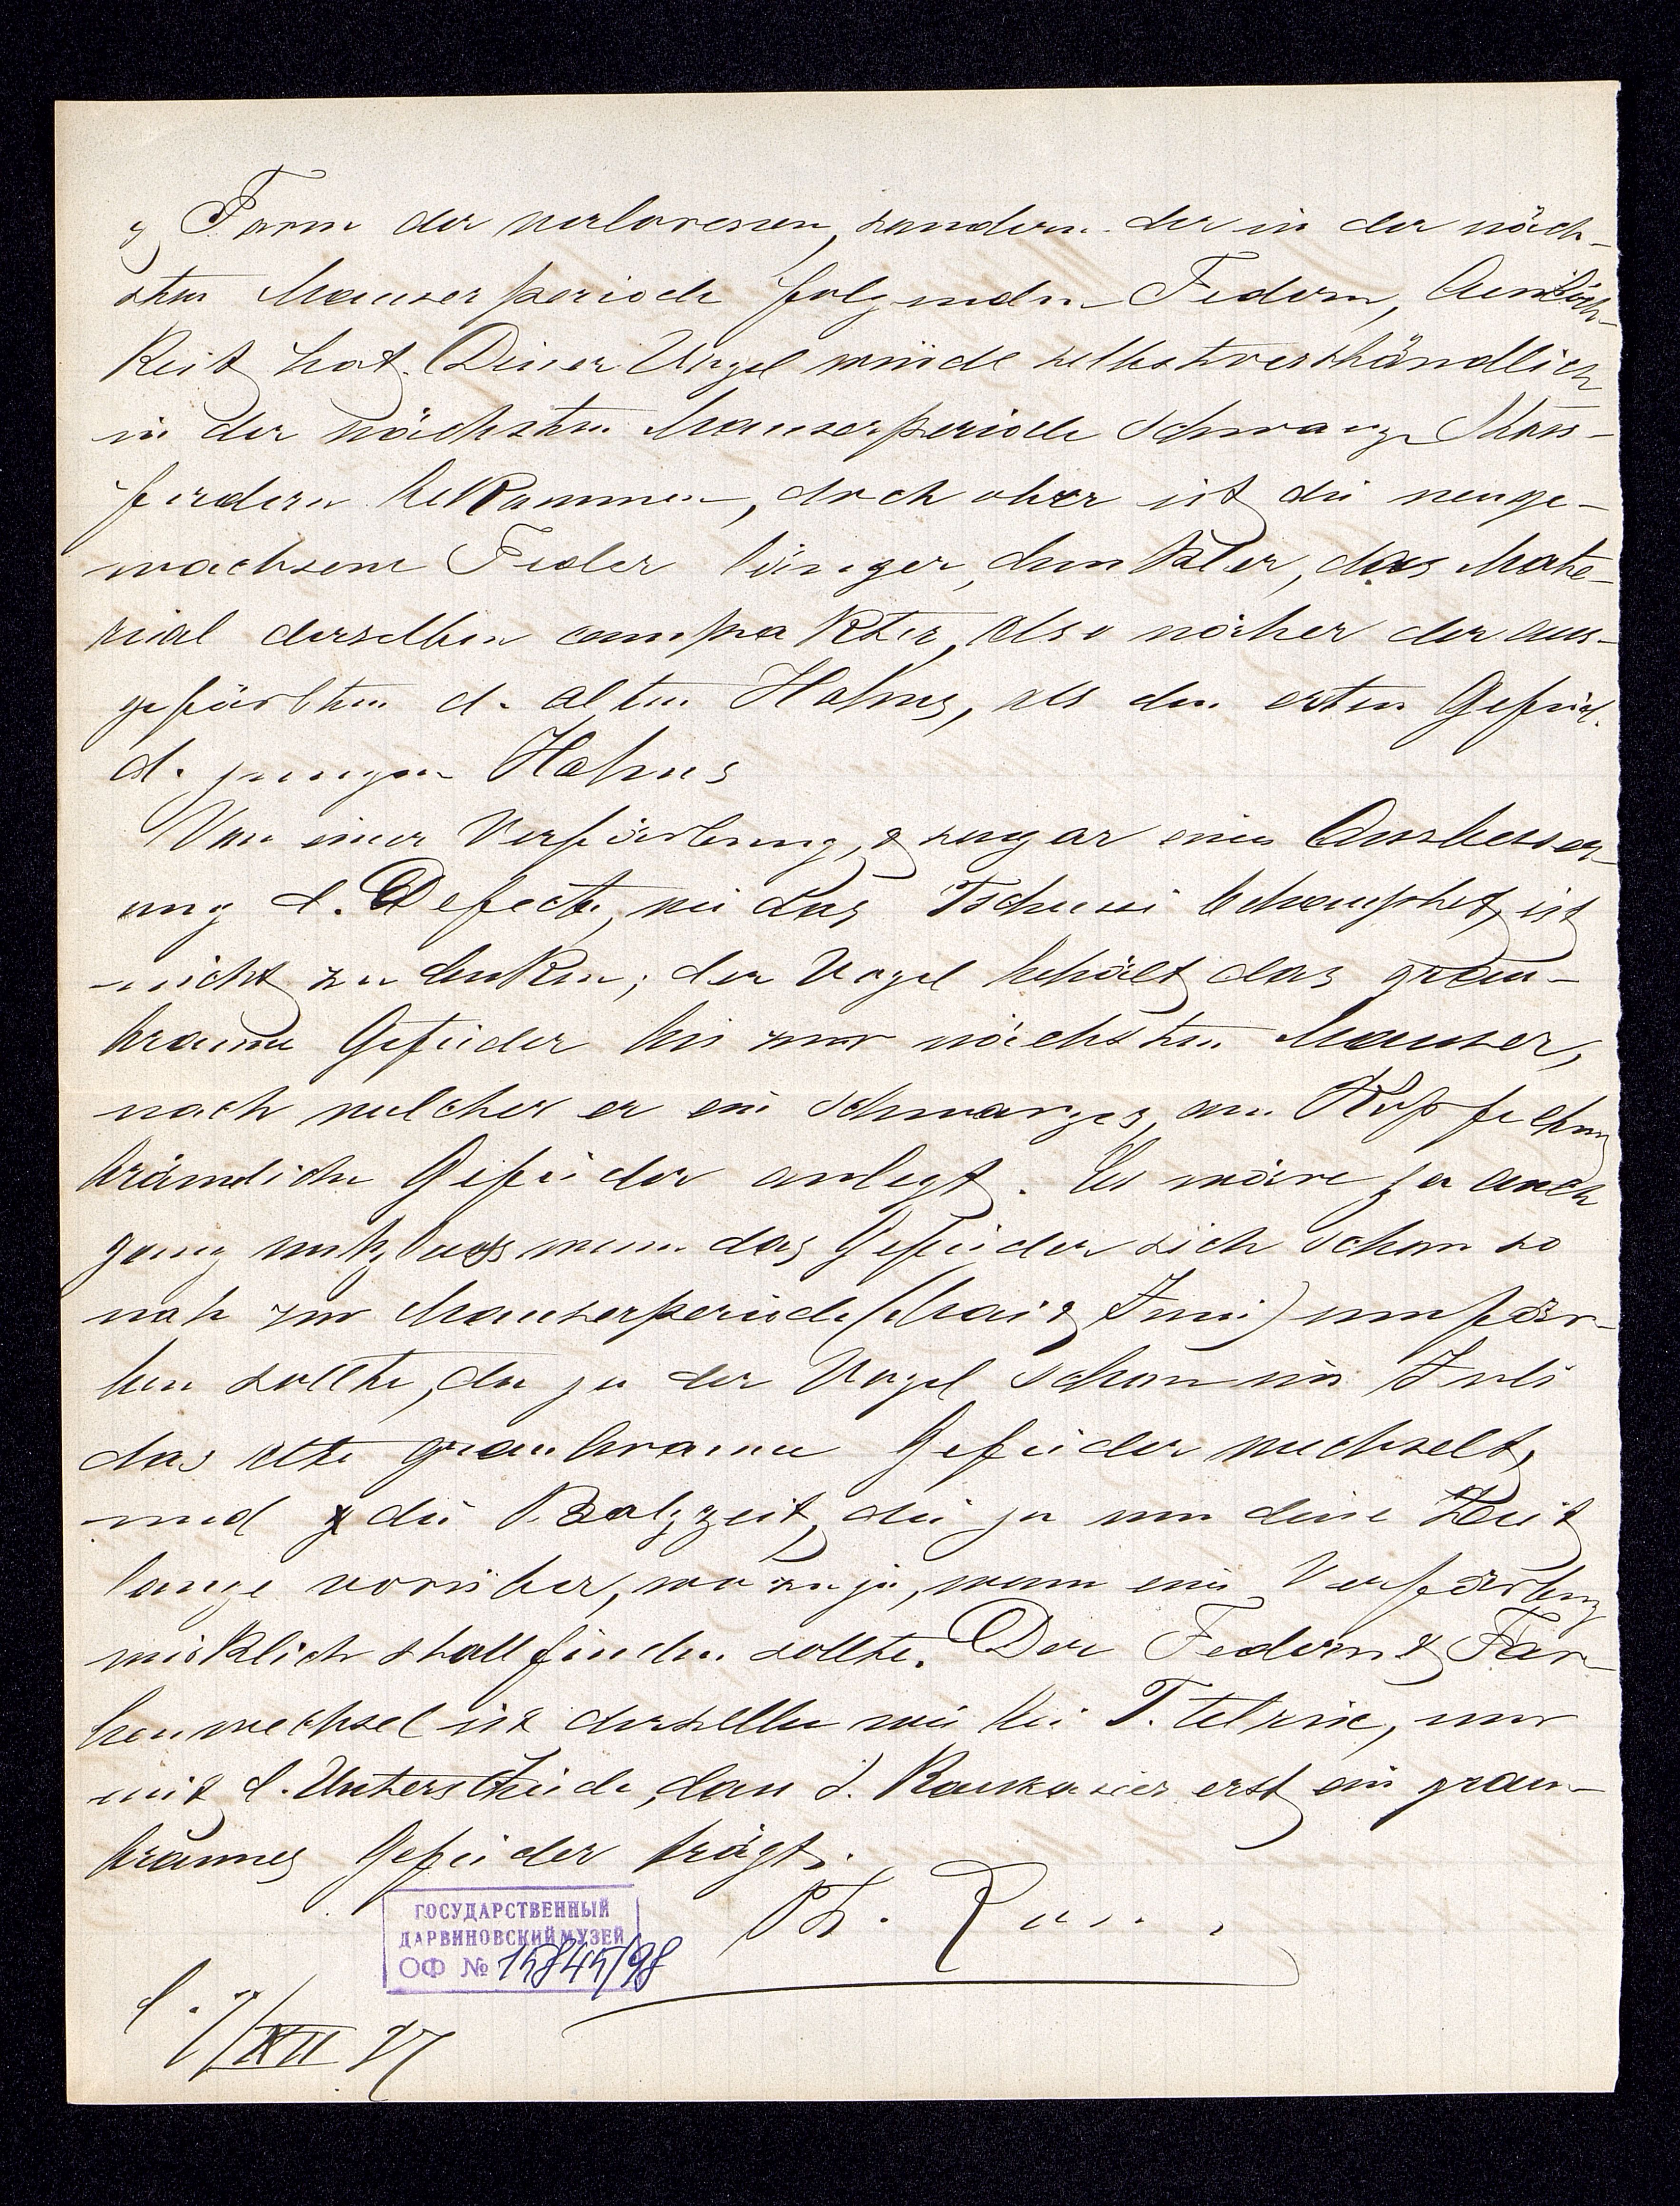 & Form der verlorenen, sondern der in der näch-
sten Mauserperiode folgenden Federn, Aenlich-
keit hat. Dieser Vogel würde selbstverständlich
in der nächsten Mauserperiode schwarze Stoss-
federn bekommen, doch aber ist die neuge-
wachsene Feder länger, dunkler, das Mate-
rial derselben compakter, also näher der aus-
gefärbten d. alten Hahns, als den ersten Gefied.
d. jungen Hahns
Von einer Verfärbung, & sogar einer Ausbesser-
ung d. Defecte, wie das Tschusi behauptet, ist
nicht zu denken; der Vogel behält das grau-
braune Gefieder bis zur nächsten Mauser,
nach welcher er ein schwarzes, am Kopfe
bräunliche Gefieder anlegt. Es wäre ja auch
ganz nutzlos wenn das Gefieder sich schon so
nah zur Mauserperiode (Mai & Juni) umfär-
ben sollte, da ja der Vogel schon im Juli
das alte graubraune Gefieder wechselt,
und die Balzzeit, die ja um diese Zeit
lange vorüber, wozu ja, wenn eine Verfärbung
wirklich stattfinden sollte. Der Federn & Far-
benwechsel ist derselbe wie bei T. tetrix, nur
mit d. Unterschiede, dass d. Kaukasier erst ein grau-
braunes Gefieder trägt.
ГОСУДАРСТВЕННЫЙ
ДАРВИНОВСКИЙ МУЗЕЙ
ОФ № 15845/98
XII